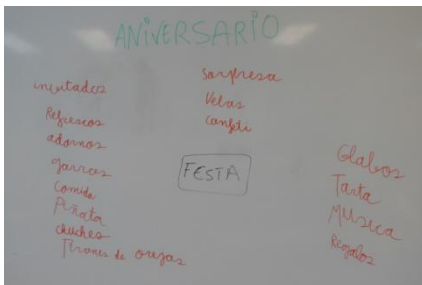 ANIVERSARIO
invitados
Refrescos
adornos
gorros
Comida
Piñata
chuches
Tirones de orejas
Sorpresa
Velas
Confeti
FESTA
Globos
Tarta
MUSICA
Regalos